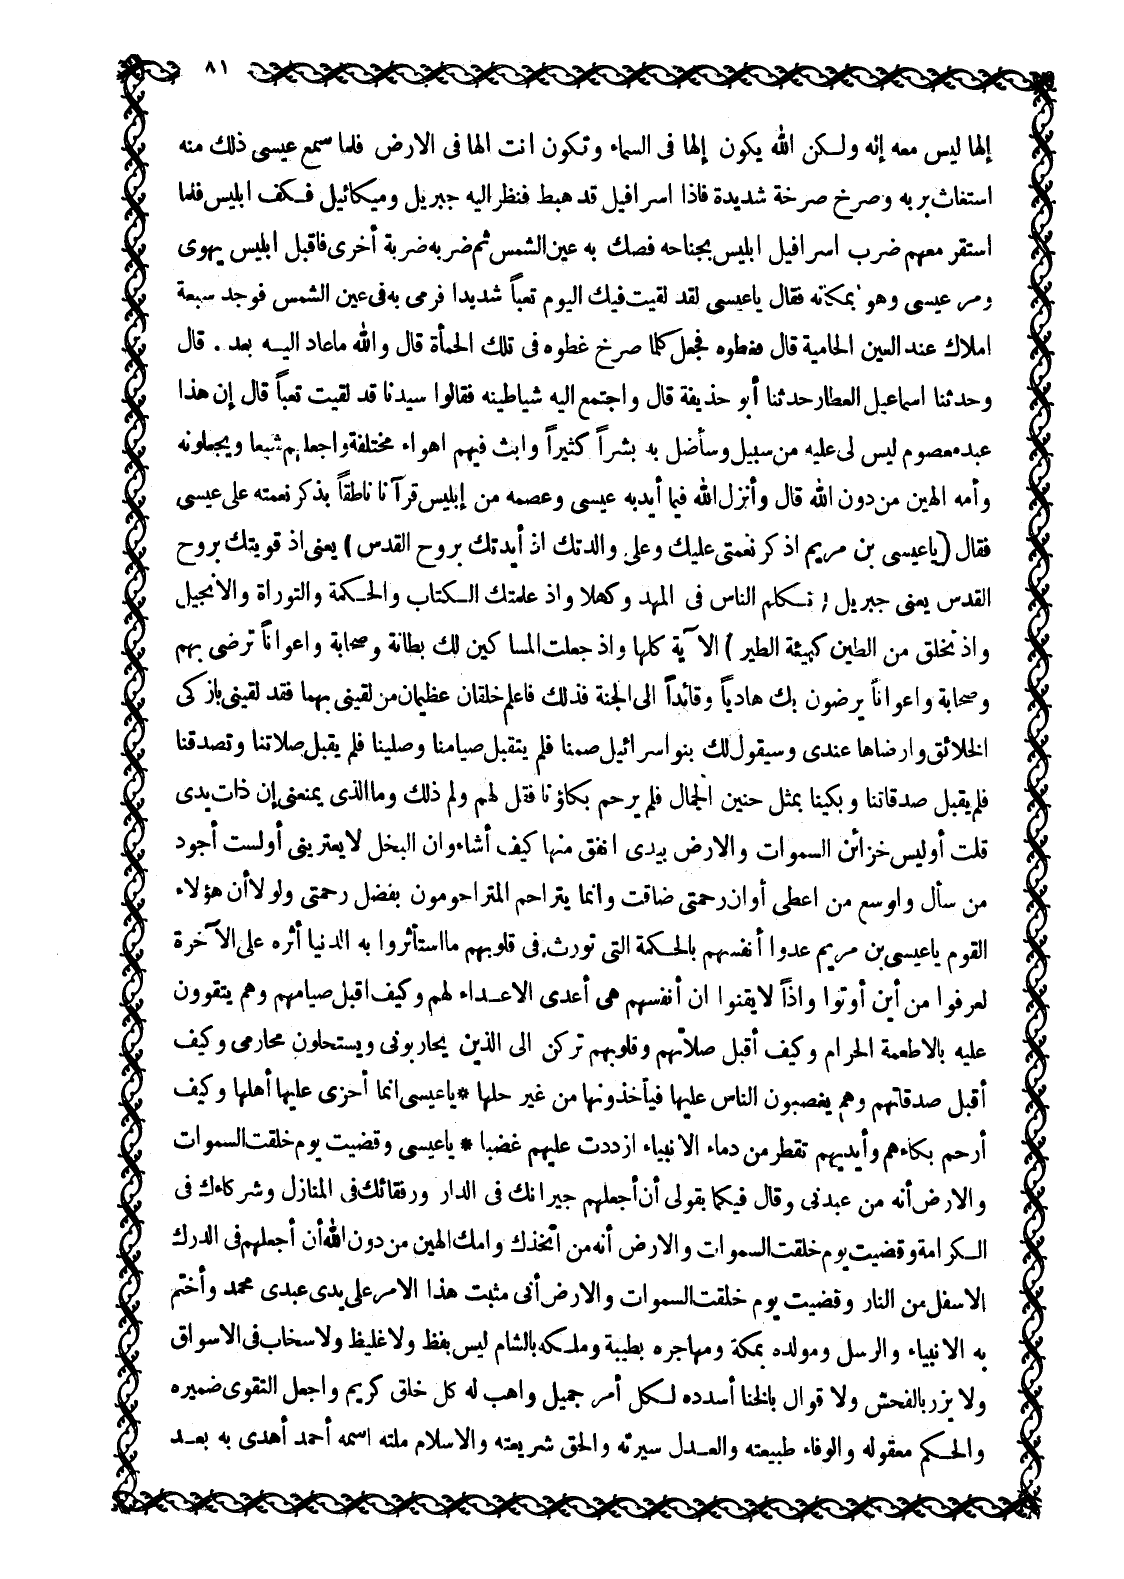 ٨١
إلها ليس معه إله ولكن الله يكون إلها فى السماء وتكون انت الها فى الارض فلما سمع عيسى ذلك منه
استغاث بربه وصرخ صرخة شديدة فاذا اسرافيل قد هبط فنظر اليه جبريل وميكائيل فكف ابليس فلما
استقر معهم ضرب اسرافيل ابليس بجناحه فصك به عين الشمس ثم ضربه ضربة أخرى فاقبل ابليس يهوى
ومر عيسى وهو بمكانه فقال ياعيسى لقد لقيت فيك اليوم تعباً شديدا فرمى به فى عين الشمس فوجد سبعة
املاك عند العين الحامية قال فغطوه فجعل كلما صرخ غطوه فى تلك الحمأة قال والله ماعاد اليه بعد . قال
وحدثنا اسماعيل العطار حدثنا أبو حذيفة قال واجتمع اليه شياطينه فقالوا سيدنا قد لقيت تعباً قال إن هذا
عبد معصوم ليس لى عليه من سبيل وسأضل به بشراً كثيراً وابث فيهم اهواء مختلفة واجعلهم شيعا ويجعلونه
وأمه الهين من دون الله قال وأنزل الله فيما أيدبه عيسى وعصمه من إبليس قرآنا ناطقاً بذكر نعمته على عيسى
فقال (ياعيسى بن مريم اذكر نعمتى عليك وعلى والدتك اذ أيدتك بروح القدس) يعنى اذ قويتك بروح
القدس يعنى جبريل (تكلم الناس فى المهد وكهلا واذ علمتك الكتاب والحكمة والتوراة والانجيل
واذ تخلق من الطين كهيئة الطير) الآية كلها واذ جعلت المساكين لك بطانة وصحابة واعواناً ترضى بهم
وصحابة واعواناً يرضون بك هادياً وقائداً الى الجنة فذلك فاعلم خلقان عظيمان من لقينى بهما فقد لقينى بازكى
الخلائق وارضاها عندى وسيقول لك بنو اسرائيل صمنا فلم يتقبل صيامنا وصلينا فلم يقبل صلاتنا وتصدقنا
فلم يقبل صدقاتنا وبكينا بمثل حنين الجمال فلم يرحم بكاؤنا فقل لهم ولم ذلك وما الذى يمنعنى إن ذات يدى
قلت أوليس خزائن السموات والارض بيدى انفق منها كيف أشاء وان البخل لا يعترينى أولست أجود
من سأل واوسع من اعطى أوان رحمتى ضاقت وانما يتراحم المتراحمون بفضل رحمتى ولولا أن هؤلاء
القوم ياعيسى بن مريم عدوا أنفسهم بالحكمة التى تورث فى قلوبهم مااستأثروا به الدنيا أثره على الآخرة
لعرفوا من أين أوتوا واذاً لايقنوا ان أنفسهم هى أعدى الاعداء لهم وكيف اقبل صيامهم وهم يتقوون
عليه بالاطعمة الحرام وكيف أقبل صلاتهم وقلوبهم تركن الى الذين يحاربونى ويستحلون محارمى وكيف
أقبل صدقاتهم وهم يغصبون الناس عليها فيأخذونها من غير حلها * ياعيسى انما أجزى عليها أهلها وكيف
أرحم بكاءهم وأيديهم تقطر من دماء الانبياء ازددت عليهم غضبا * ياعيسى وقضيت يوم خلقت السموات
والارض أنه من عبدنى وقال فيكما بقولى أن أجعلهم جيرانك فى الدار ورفقائك فى المنازل وشركاءك فى
الكرامة وقضيت يوم خلقت السموات والارض أنه من اتخذك وامك الهين من دون الله أن أجعلهم فى الدرك
الاسفل من النار وقضيت يوم خلقت السموات والارض أنى مثبت هذا الامر على يدى عبدى محمد وأختم
به الانبياء والرسل ومولده بمكة ومهاجره بطيبة وملكه بالشام ليس بفظ ولا غليظ ولا سخاب فى الاسواق
ولا يزر بالفحش ولا قوال بالخنا أسدده لكل أمر جميل واهب له كل خلق كريم واجعل التقوى ضميره
والحكم معقوله والوفاء طبيعته والعدل سيرته والحق شريعته والاسلام ملته اسمه أحمد أهدى به بعد